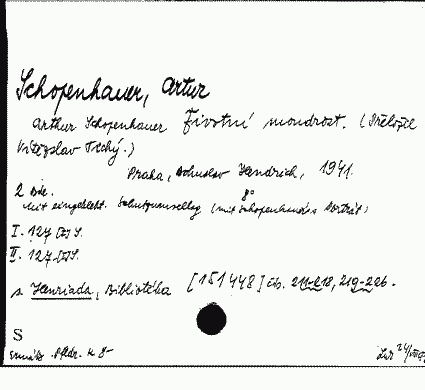 Schopenhauer, Artur
Arthur Schopenhauer Životní moudrost. (Přeložil
Vítězslav Tichý.)
Praha, Bohuslav Hendrich, 1941.
2 Bde. 8°
Mit eingeklebt. Schutzumschlag (mit Schopenhauers Porträt)
I. 127 S.
II. 127 S.
s. Henriada, Bibliotéka [151448] čís. 211-218, 219-226.
S